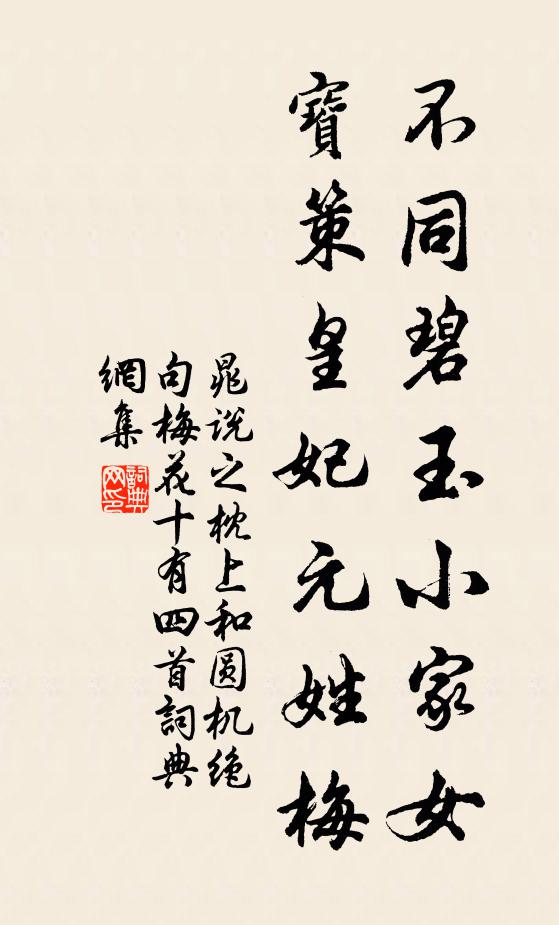 不同碧玉小家女
寶策皇妃元姓梅
晁說之枕上和圓机絶
句梅花十有四首詞典
網集
詞典
网印